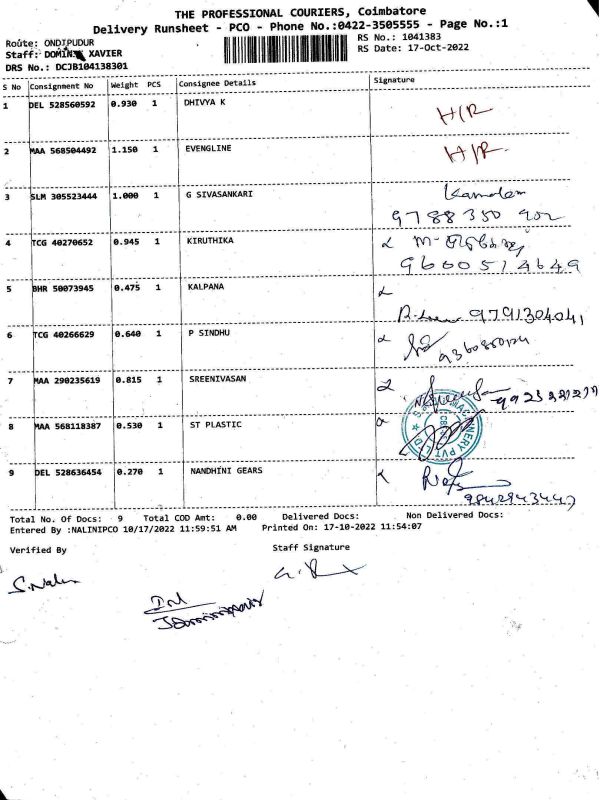 THE PROFESSIONAL COURIERS, Coimbatore
Delivery Runsheet - PCO - Phone No.:0422-3505555 - Page No.:1
Route: ONDIPUDUR
RS No.: 1041383
Staff: DOMINI XAVIER
RS Date: 17-Oct-2022
DRS No.: DCJB104138301
S No Consignment No Weight PCS Consignee Details Signature
1 DEL 528560592 0.930 1 DHIVYA K H/R
2 MAA 568504492 1.150 1 EVENGLINE H/R
3 SLM 305523444 1.000 1 G SIVASANKARI
9788350 902
4 TCG 40270652 0.945 1 KIRUTHIKA
9600514649
5 BHR 50073945 0.475 1 KALPANA
9791304041
6 TCG 40266629 0.640 1 P SINDHU
7 MAA 290235619 0.815 1 SREENIVASAN
8 MAA 568118387 0.530 1 ST PLASTIC
9 DEL 528636454 0.270 1 NANDHINI GEARS
9842943447
Total No. Of Docs: 9 Total COD Amt: 0.00 Delivered Docs: Non Delivered Docs:
Entered By :NALINIPCO 10/17/2022 11:59:51 AM Printed On: 17-10-2022 11:54:07
Verified By Staff Signature
S. Nalin